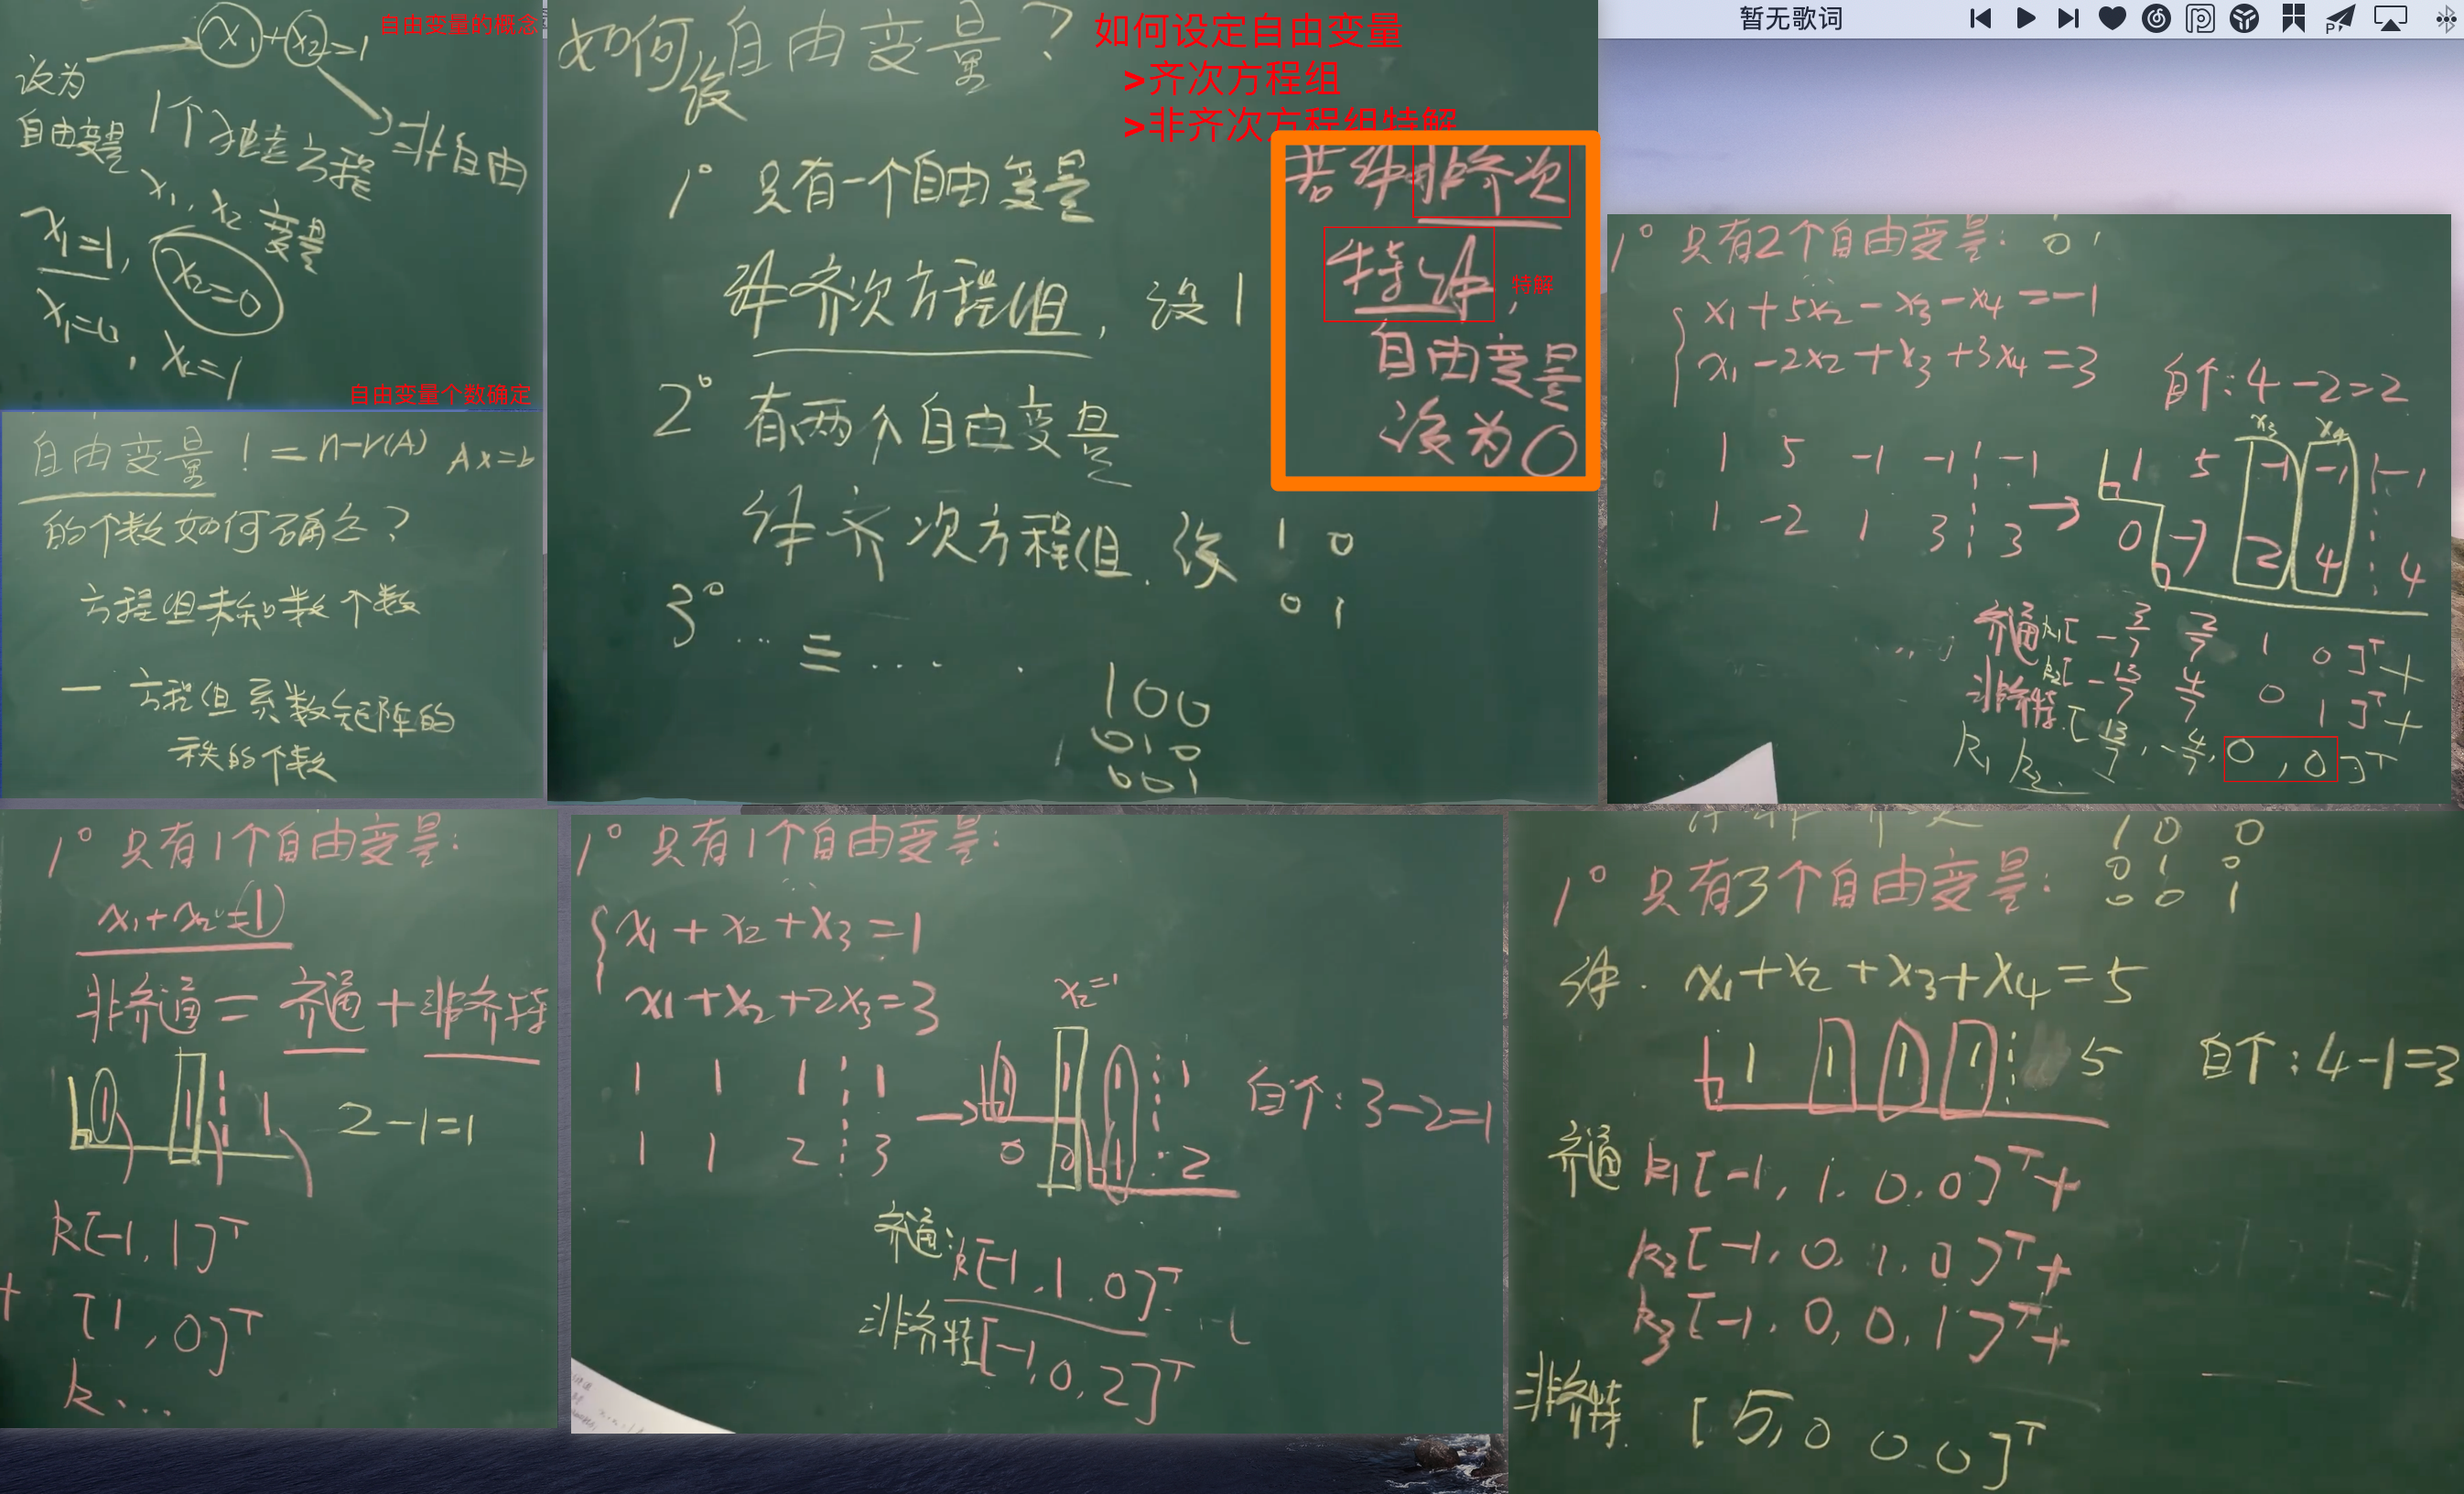 暂无歌词
自由变量的概念
x₁+x₂=1
设为
自由变量
1个独立方程
非自由
x₁, x₂ 变量
x₁=1, x₂=0
x₁=0, x₂=1
自由变量个数确定
自由变量 ! = n-r(A) Ax=b
的个数如何确定?
方程组未知数个数
一 方程组系数矩阵的
秩的个数
如何设自由变量?
如何设定自由变量
>齐次方程组
>非齐次方程组特解
1° 只有一个自由变量
解齐次方程组, 设 1
2° 有两个自由变量
解齐次方程组. 设 1 0
0 1
3° ... 三 ....
1 0 0
0 1 0
0 0 1
若解非齐次
特解,
特解
自由变量
设为0
1° 只有2个自由变量:
x₁+5x₂-x₃-x₄=-1
x₁-2x₂+x₃+3x₄=3
自个: 4-2=2
x₃ x₄
1 5 -1 -1 ⋮ -1 → 1 5 -1 -1 ⋮ -1
1 -2 1 3 ⋮ 3 0 -7 2 4 ⋮ 4
齐通 k₁[-3/7 2/7 1 0]ᵀ+
k₂[-13/7 4/7 0 1]ᵀ+
非齐特. [13/7, -4/7, 0, 0]ᵀ
k₁ k₂
1° 只有1个自由变量:
x₁+x₂=1
非齐通=齐通+非齐特
1 1 ⋮ 1 2-1=1
k[-1, 1]ᵀ
+ [1, 0]ᵀ
k...
1° 只有1个自由变量:
x₁+x₂+x₃=1
x₁+x₂+2x₃=3
x₂=1
1 1 1 ⋮ 1 → 1 1 1 ⋮ 1
1 1 2 ⋮ 3 0 0 1 ⋮ 2
自个: 3-2=1
齐通: k[-1, 1, 0]ᵀ
非齐特[-1, 0, 2]ᵀ
1 0 0
0 1 0
0 0 1
1° 只有3个自由变量:
解. x₁+x₂+x₃+x₄=5
1 1 1 1 ⋮ 5 自个: 4-1=3
齐通 k₁[-1, 1, 0, 0]ᵀ+
k₂[-1, 0, 1, 0]ᵀ+
k₃[-1, 0, 0, 1]ᵀ+
非齐特. [5, 0 0 0]ᵀ